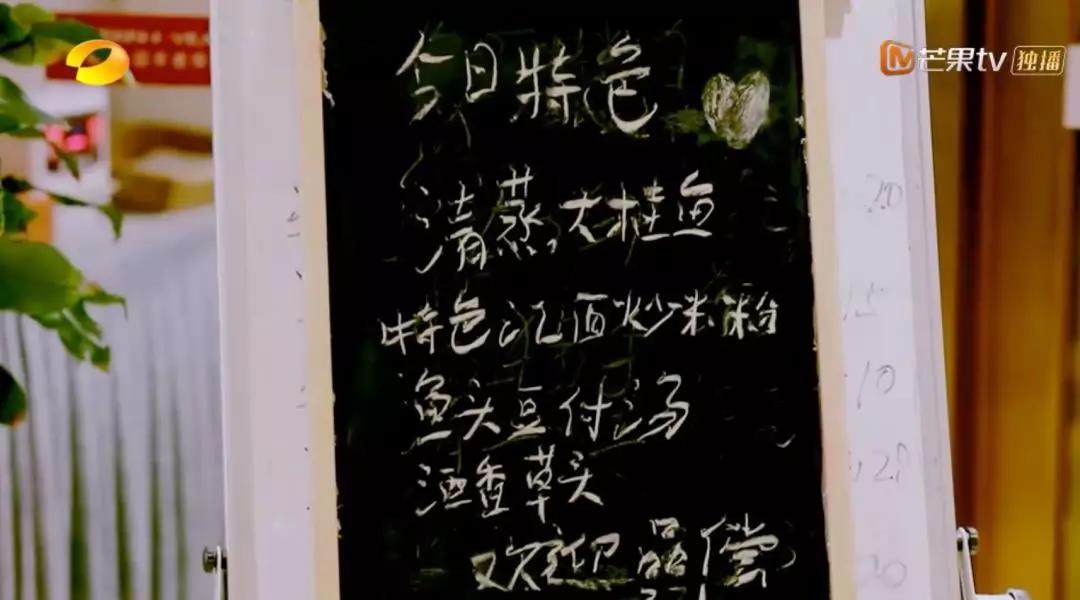 芒果tv 独播
今日特色
清蒸大桂鱼
特色江面炒米粉
鱼头豆付汤
酒香草头
欢迎品偿
20
10
20